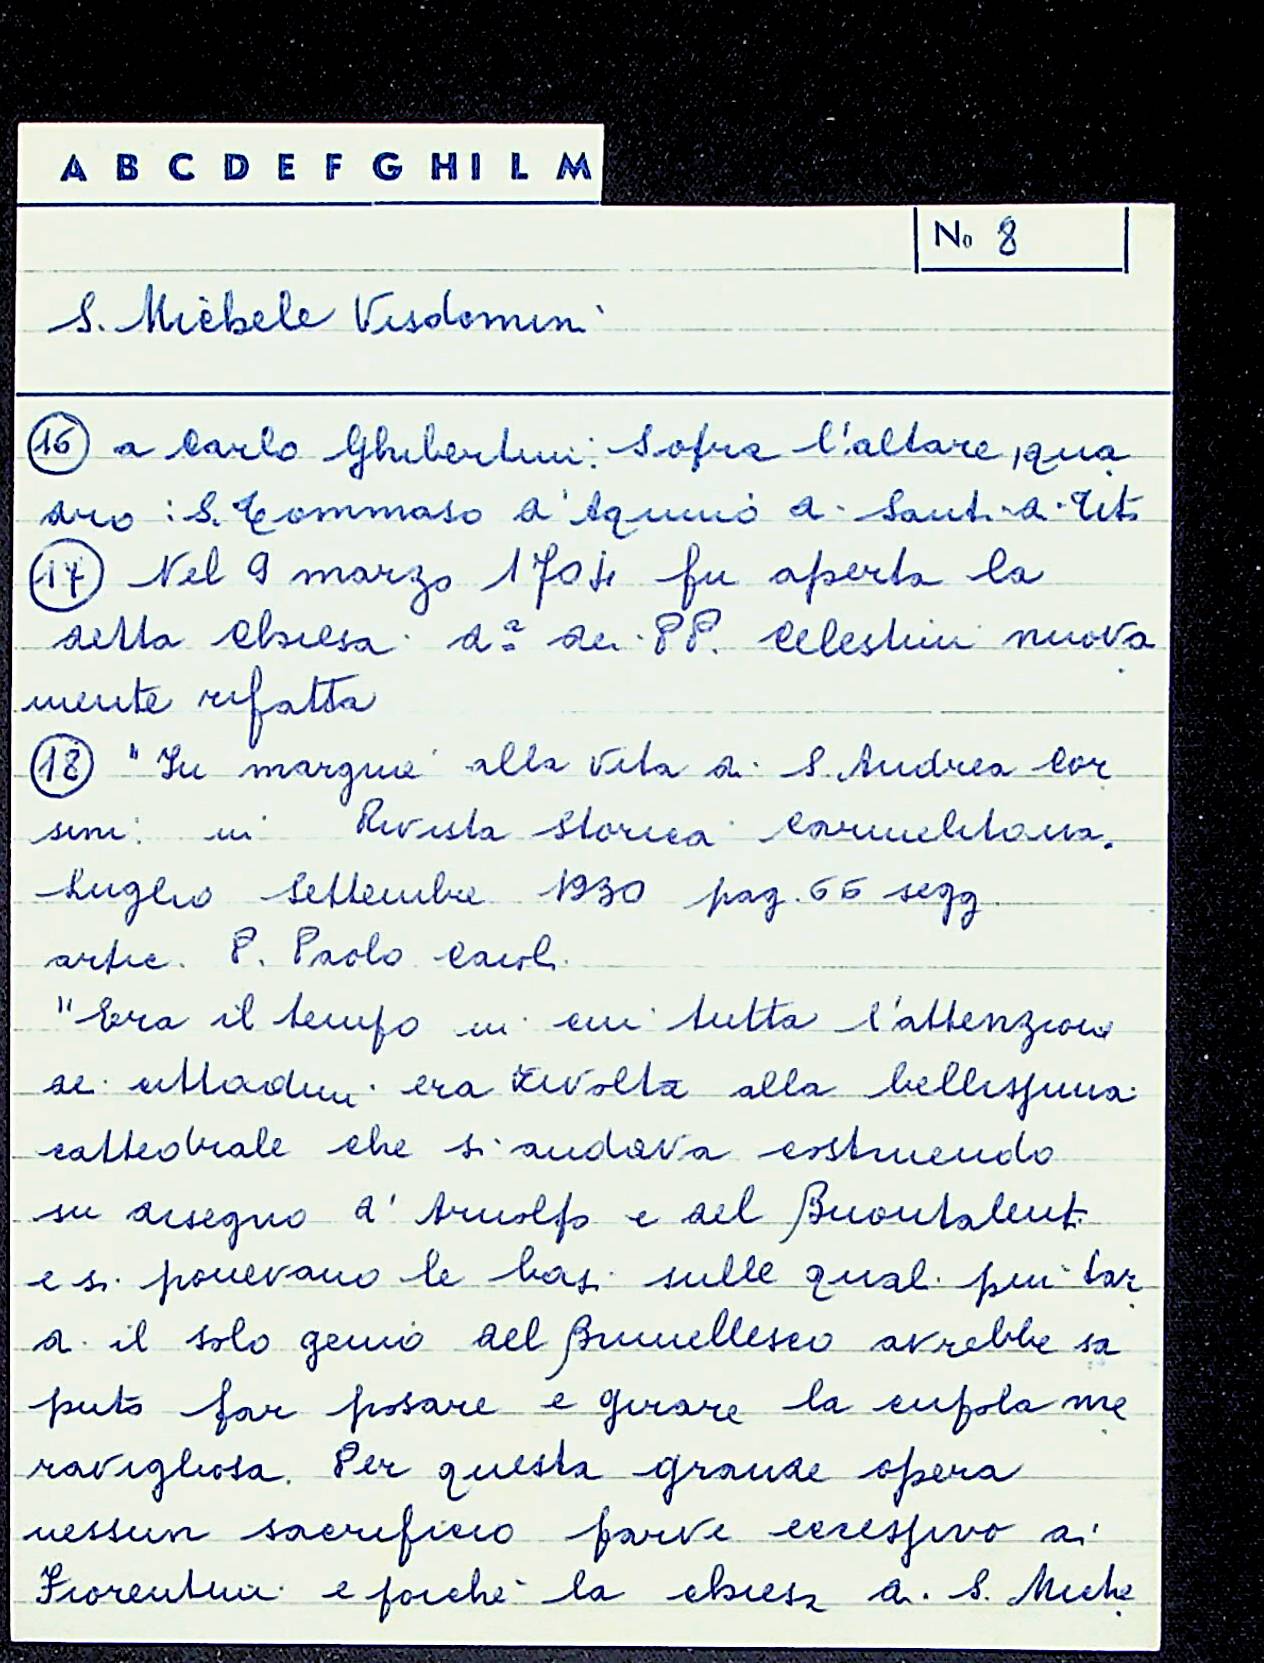 A B C D E F G H I L M
No 8
S. Michele Visdomini
16 a Carlo Ghibertini. Sopra l'altare, qua
dro : S. Tommaso d'Aquino di Santi di Tito
17 Nel 9 marzo 1704 fu aperta la
detta chiesa da dei PP. Celestini nuova
mente rifatta
18 "In margine alla vita di S. Andrea Cor
sini in Rivista Storica Carmelitana.
Luglio Settembre 1930 pag. 66 segg.
artic. P. Paolo Caioli.
"Era il tempo in cui tutta l'attenzione
dei cittadini era rivolta alla bellissima
cattedrale che si andava costruendo
su disegno d'Arnolfo e del Buontalenti
e si ponevano le basi sulle quali più tar
di il solo genio del Brunellesco avrebbe sa
puto far posare e girare la cupola me
ravigliosa. Per questa grande opera
nessun sacrificio parve eccessivo ai
Fiorentini e poiché la chiesa di S. Miche